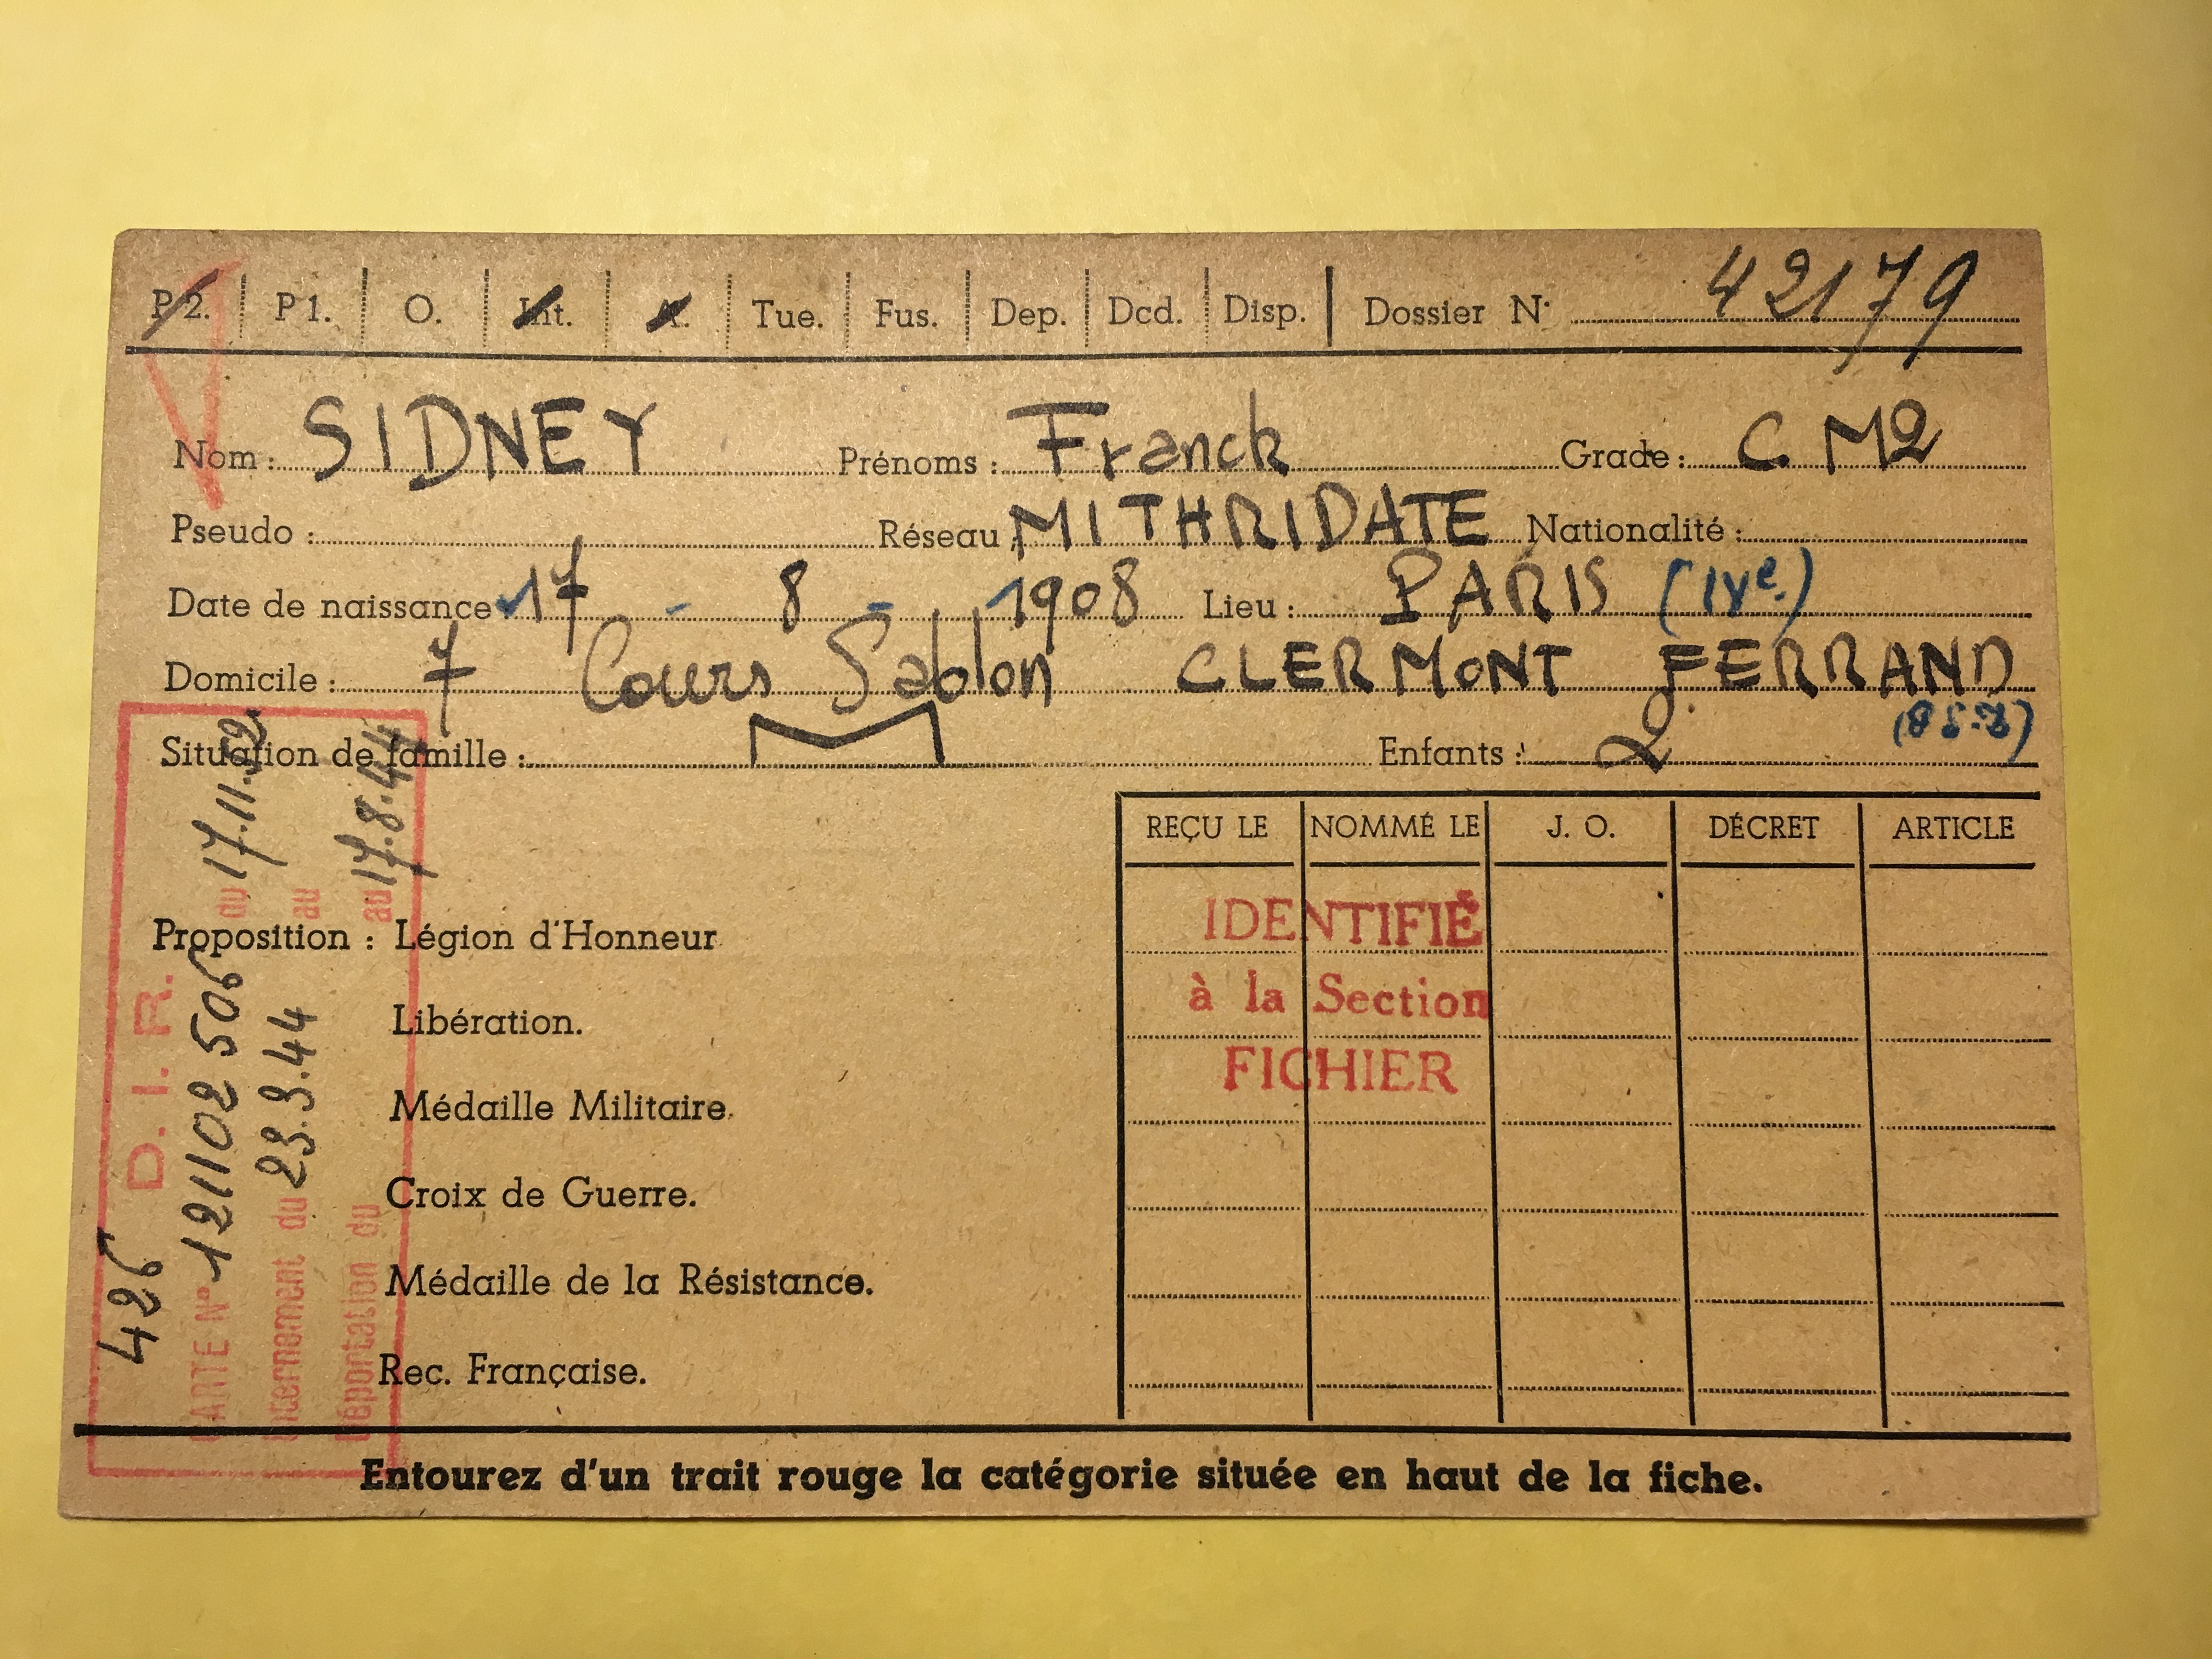 P2. P1. O. Int. A. Tue. Fus. Dep. Dcd. Disp. Dossier N° 42179
Nom : SIDNEY Prénoms : Franck Grade : C. M2
Pseudo : Réseau : MITHRIDATE Nationalité :
Date de naissance 17 - 8 - 1908 Lieu : PARIS (IVe.)
Domicile : 7 Cours Sablon CLERMONT FERRAND
Situation de famille : M Enfants : 2
REÇU LE NOMMÉ LE J. O. DÉCRET ARTICLE
IDENTIFIÉ
à la Section
FICHIER
Proposition : Légion d'Honneur
Libération.
Médaille Militaire.
Croix de Guerre.
Médaille de la Résistance.
Rec. Française.
426 D. I. R.
CARTE N° 121102 506 du 17.11.52
Internement du 23.3.44 au
Déportation du au 17.8.44
Entourez d'un trait rouge la catégorie située en haut de la fiche.